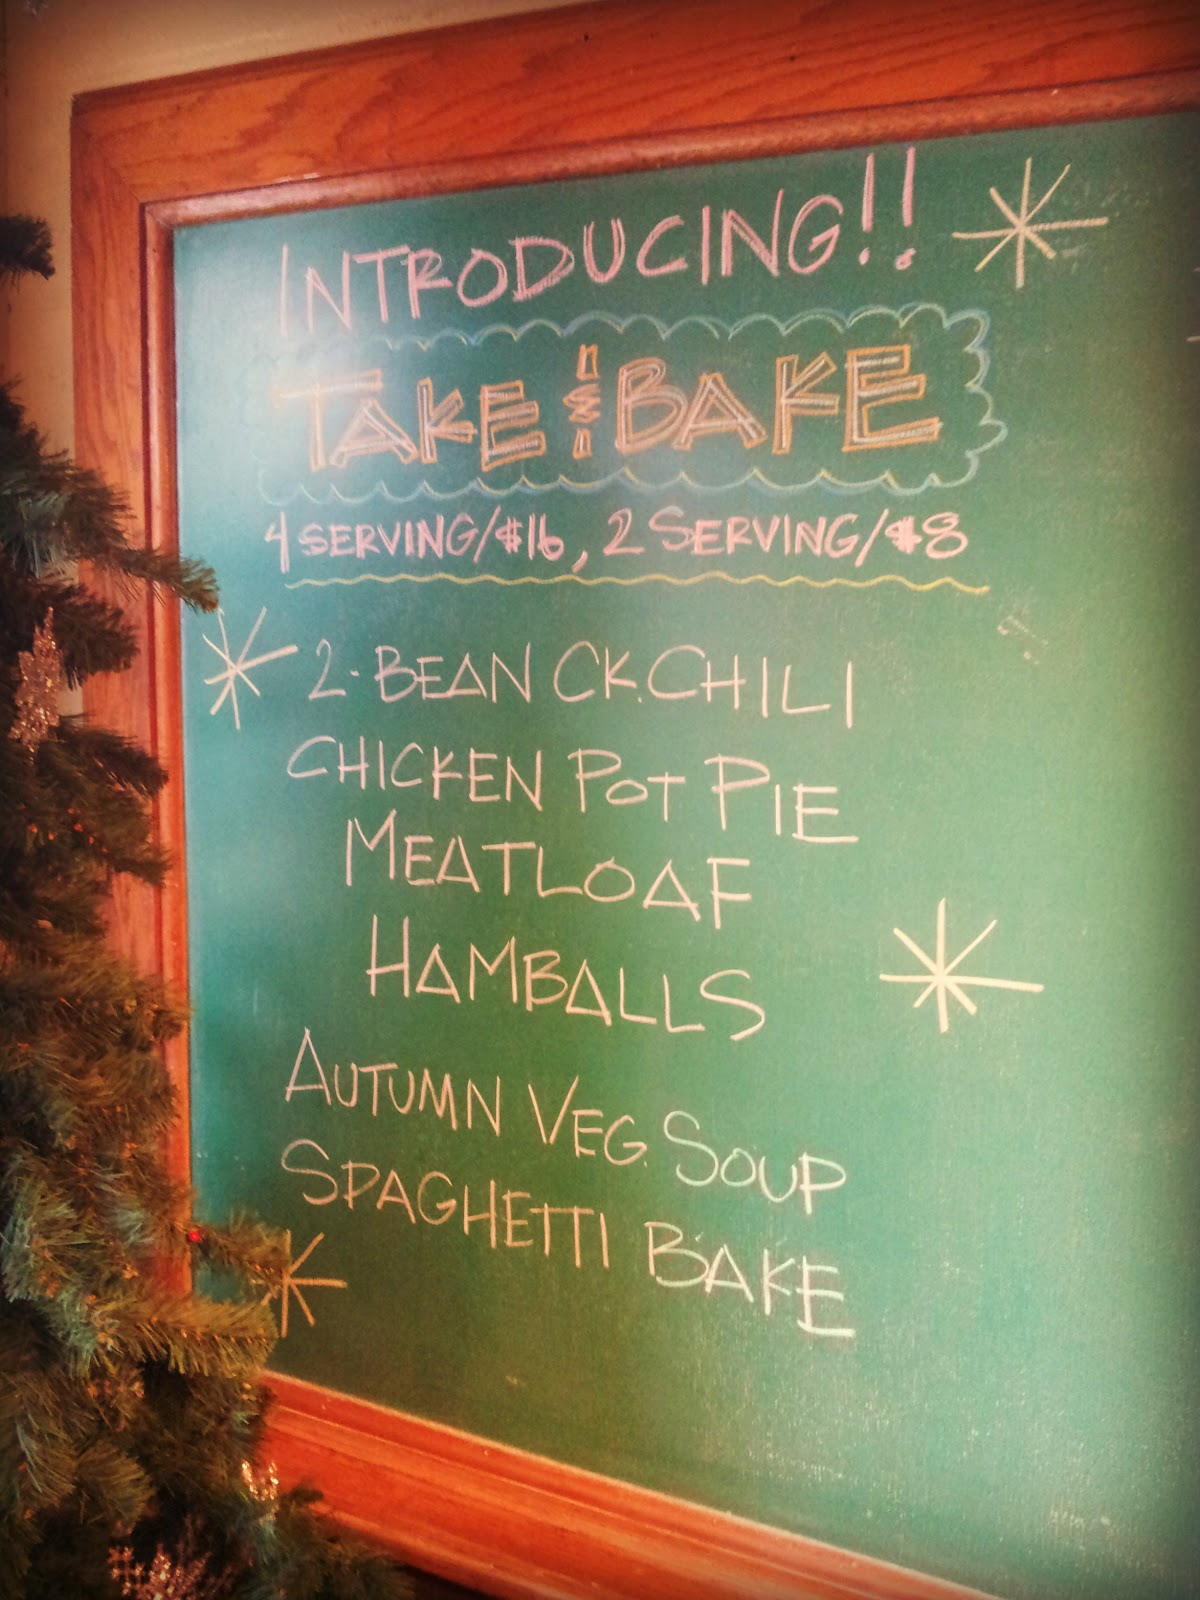 INTRODUCING!!
TAKE & BAKE
4 SERVING/$16, 2 SERVING/$8
2-BEAN CK. CHILI
CHICKEN POT PIE
MEATLOAF
HAMBALLS
AUTUMN VEG. SOUP
SPAGHETTI BAKE